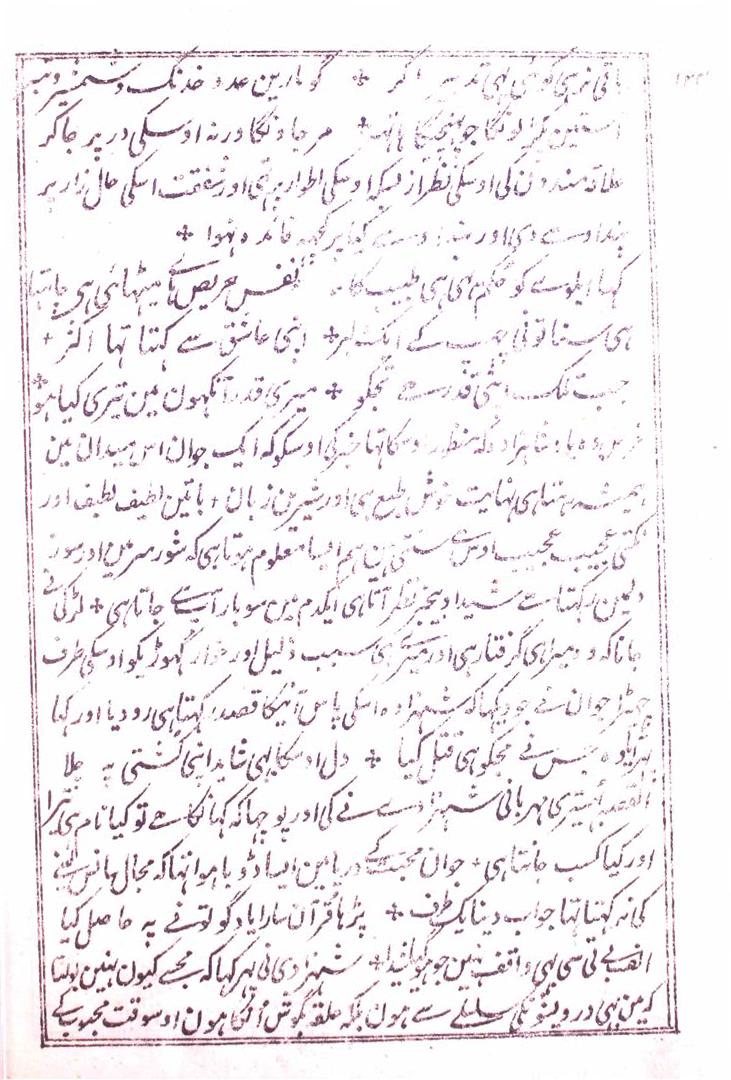 باقی نرہی کوئی بہی تدبیر اگر + گو مارین عدو خدنگ و شمشیر و تبر
آستین پکڑ لونگا جو پہنچیگا ہاتہہ + مر جاونگا ورنہ اوسکی در پر جا کر
علاقہ مندون کی اوسکی نظر از بسکہ اوسکی اطوار پر تہی اور شفقت اسکی حال زار پر
پند اوسے دی اور اوسے کیا پر کچہہ فائدہ نہوا +
کہا ایلوے کو حکم ہی ہی طبیب کا نفس حریص ہاے میٹہائی ہی چاہتا
ہی سنا تونی چہپ کے ایک دلبر + اپنی عاشق سے کہتا تہا اکثر +
جب تلک اپنی قدر ہے تجکو + میری قدر آنکہون مین تیری کیا ہو +
غرض وہ بادشاہزادہ کہ منظور اوسکا تہا خبر کی اوسکو کہ ایک جوان اس میدان مین
ہمیشہ رہتا ہی نہایت خوش طبع ہی اور شیرین زبان + باتین لطیف لطیف اور
نکتی عجیب عجیب اوس سے سنتی ہین ہم ایسا معلوم ہوتا ہی کہ شور سر مین اور سوز
دلمین رکہتا ہے شیدا و بیخبر نظر آتا ہی ایکدم مین سو بار آپ سے جاتا ہی + لڑکی نے
جانا کہ وہ میرا ہی گرفتار ہی اور میرے ہی سبب ذلیل اور خوار گہوڑیکو اوسکی طرف
چہیڑا جوان نے جو دیکہا کہ شہزادہ اسکی پاس آنیکا قصد رکہتا ہی رو دیا اور کہا
پہر آیا وہ جس نے مجکو ہی قتل کیا + دل اوسکا بہی شاید اپنی کشتی پہ جلا
القصہ بہتیری مہربانی شہزادے نے کی اور پوچہا کہ کہانکا ہے تو کیا نام ہی تیرا
اور کیا کسب جانتا ہی + جوان محبت کے دریا مین ایسا ڈوبا ہوا تہا کہ مجال سانس لینے
کی نہ رکہتا تہا جواب دینا یکطرف + پڑہا قرآن سارا یاد گو تونے یہ حاصل کیا
الف بے تی سی بہی واقف نہین جو ہو گیا شیدا + شہزادی نی پہر کہا کہ مجہے کیون نہین بولتا
کہ مین بہی درویشونکی سلسلے سے ہون بلکہ حلقہ بگوش اونکا ہون اوسوقت محبوب کے